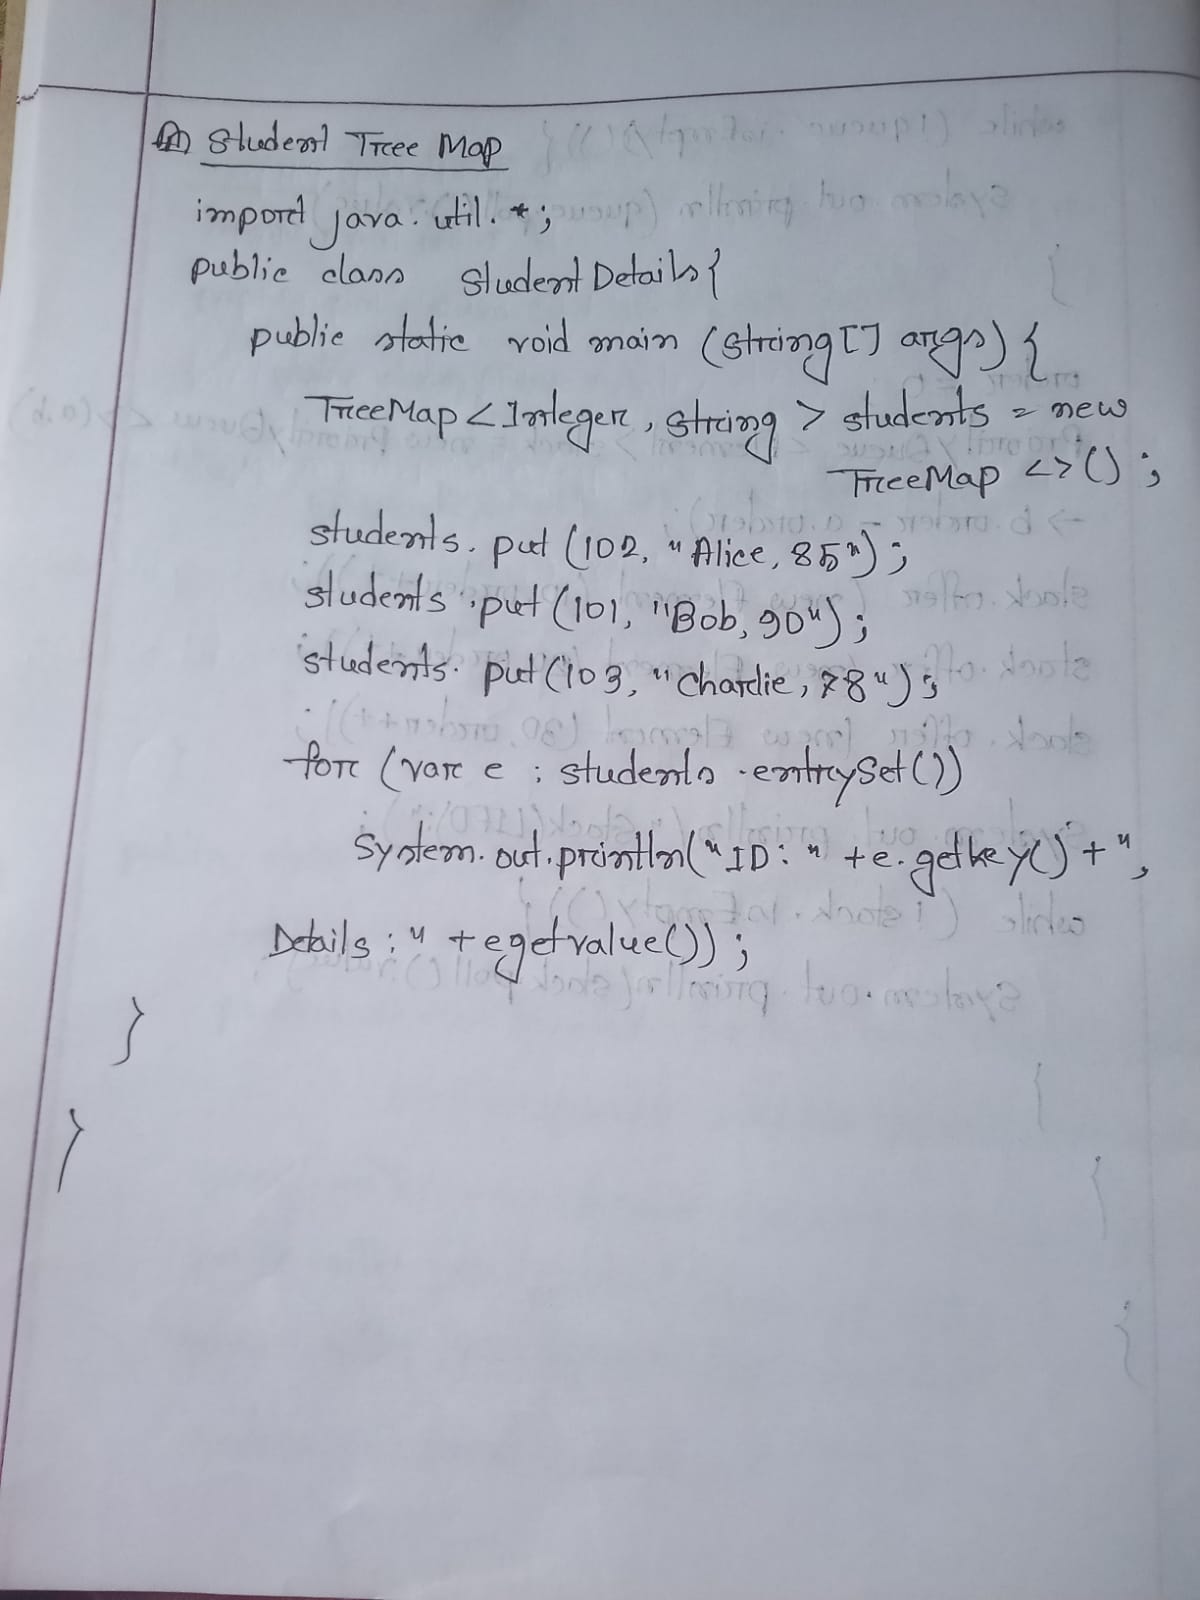 Student Tree Map
import java.util.*;
public class StudentDetails{
public static void main (String[] args) {
TreeMap<Integer, String> students = new
TreeMap <>();
students.put (102, "Alice, 85");
students.put (101, "Bob, 90");
students.put (103, "Charlie, 78");
for (var e : students.entrySet())
System.out.println("ID: " +e.getkey() + ",
Details :" + egetvalue());
}
}